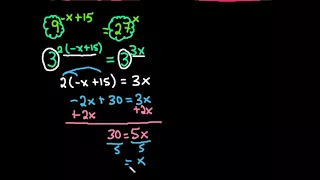 9^(-x+15) = 27^x
3^(2(-x+15)) = 3^(3x)
2(-x+15) = 3x
-2x + 30 = 3x
+2x +2x
30 = 5x
5 5
= x